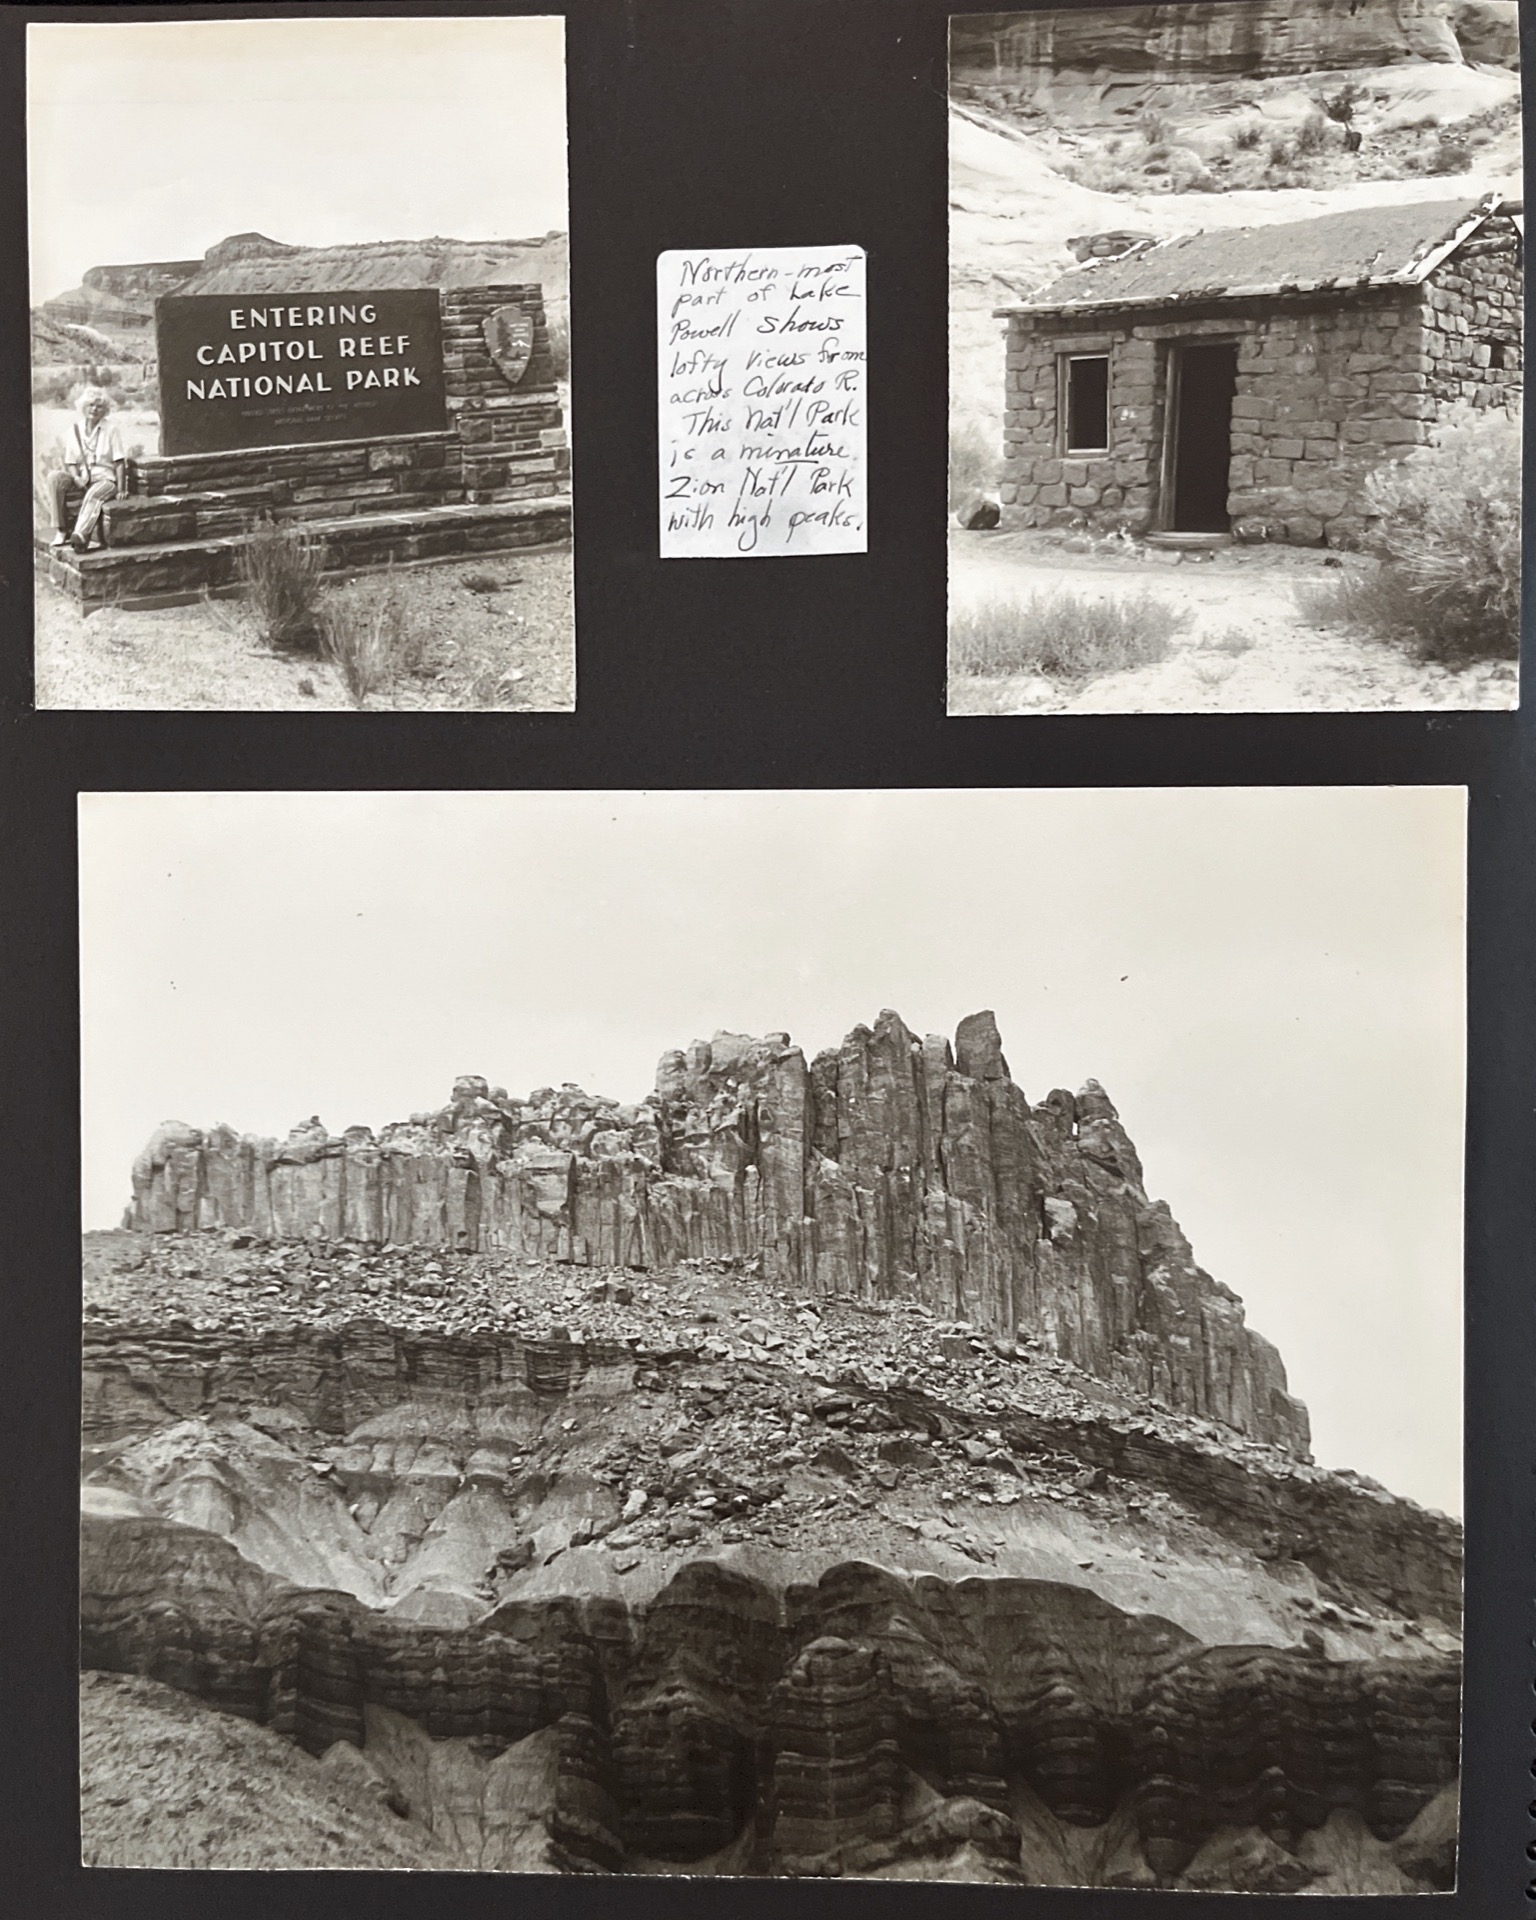 ENTERING
CAPITOL REEF
NATIONAL PARK
UNITED STATES DEPARTMENT OF THE INTERIOR
NATIONAL PARK SERVICE
Northern-most
part of Lake
Powell shows
lofty views from
across Colorado R.
This Nat'l Park
is a minature
Zion Nat'l Park
with high peaks.